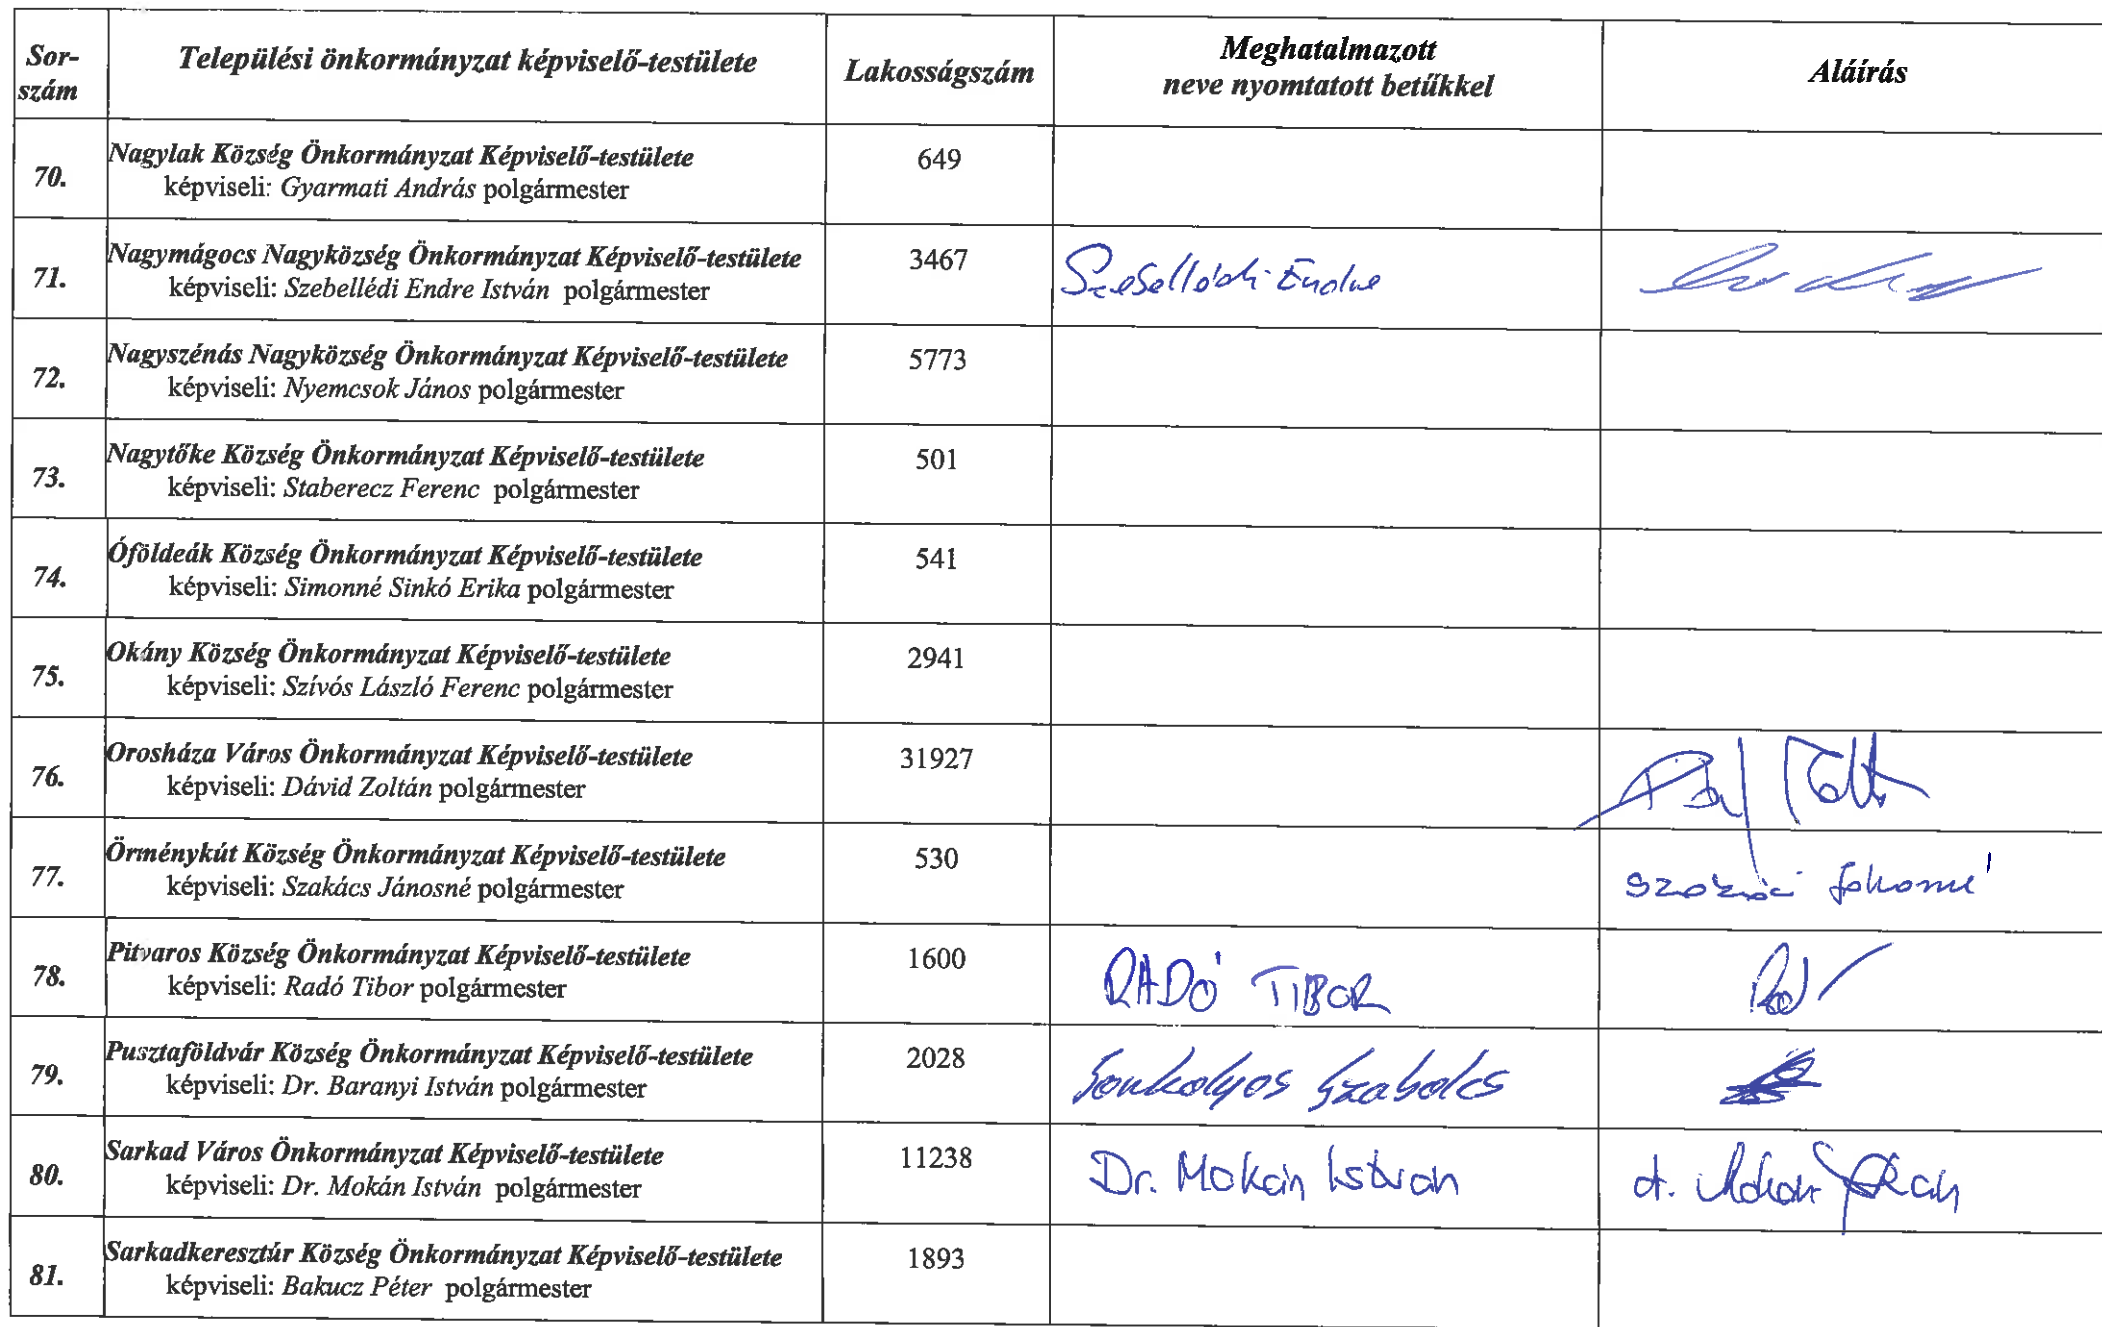 Sor-
szám
Települési önkormányzat képviselő-testülete
Lakosságszám
Meghatalmazott
neve nyomtatott betűkkel
Aláírás
70.
Nagylak Község Önkormányzat Képviselő-testülete
képviseli: Gyarmati András polgármester
649
71.
Nagymágocs Nagyközség Önkormányzat Képviselő-testülete
képviseli: Szebellédi Endre István polgármester
3467
Szebellédi Endre
72.
Nagyszénás Nagyközség Önkormányzat Képviselő-testülete
képviseli: Nyemcsok János polgármester
5773
73.
Nagytőke Község Önkormányzat Képviselő-testülete
képviseli: Staberecz Ferenc polgármester
501
74.
Óföldeák Község Önkormányzat Képviselő-testülete
képviseli: Simonné Sinkó Erika polgármester
541
75.
Okány Község Önkormányzat Képviselő-testülete
képviseli: Szívós László Ferenc polgármester
2941
76.
Orosháza Város Önkormányzat Képviselő-testülete
képviseli: Dávid Zoltán polgármester
31927
77.
Örménykút Község Önkormányzat Képviselő-testülete
képviseli: Szakács Jánosné polgármester
530
Szakács Jánosné
78.
Pitvaros Község Önkormányzat Képviselő-testülete
képviseli: Radó Tibor polgármester
1600
RADÓ TIBOR
79.
Pusztaföldvár Község Önkormányzat Képviselő-testülete
képviseli: Dr. Baranyi István polgármester
2028
Sonkolyos Szabolcs
80.
Sarkad Város Önkormányzat Képviselő-testülete
képviseli: Dr. Mokán István polgármester
11238
Dr. Mokán István
dr. Mokán István
81.
Sarkadkeresztúr Község Önkormányzat Képviselő-testülete
képviseli: Bakucz Péter polgármester
1893